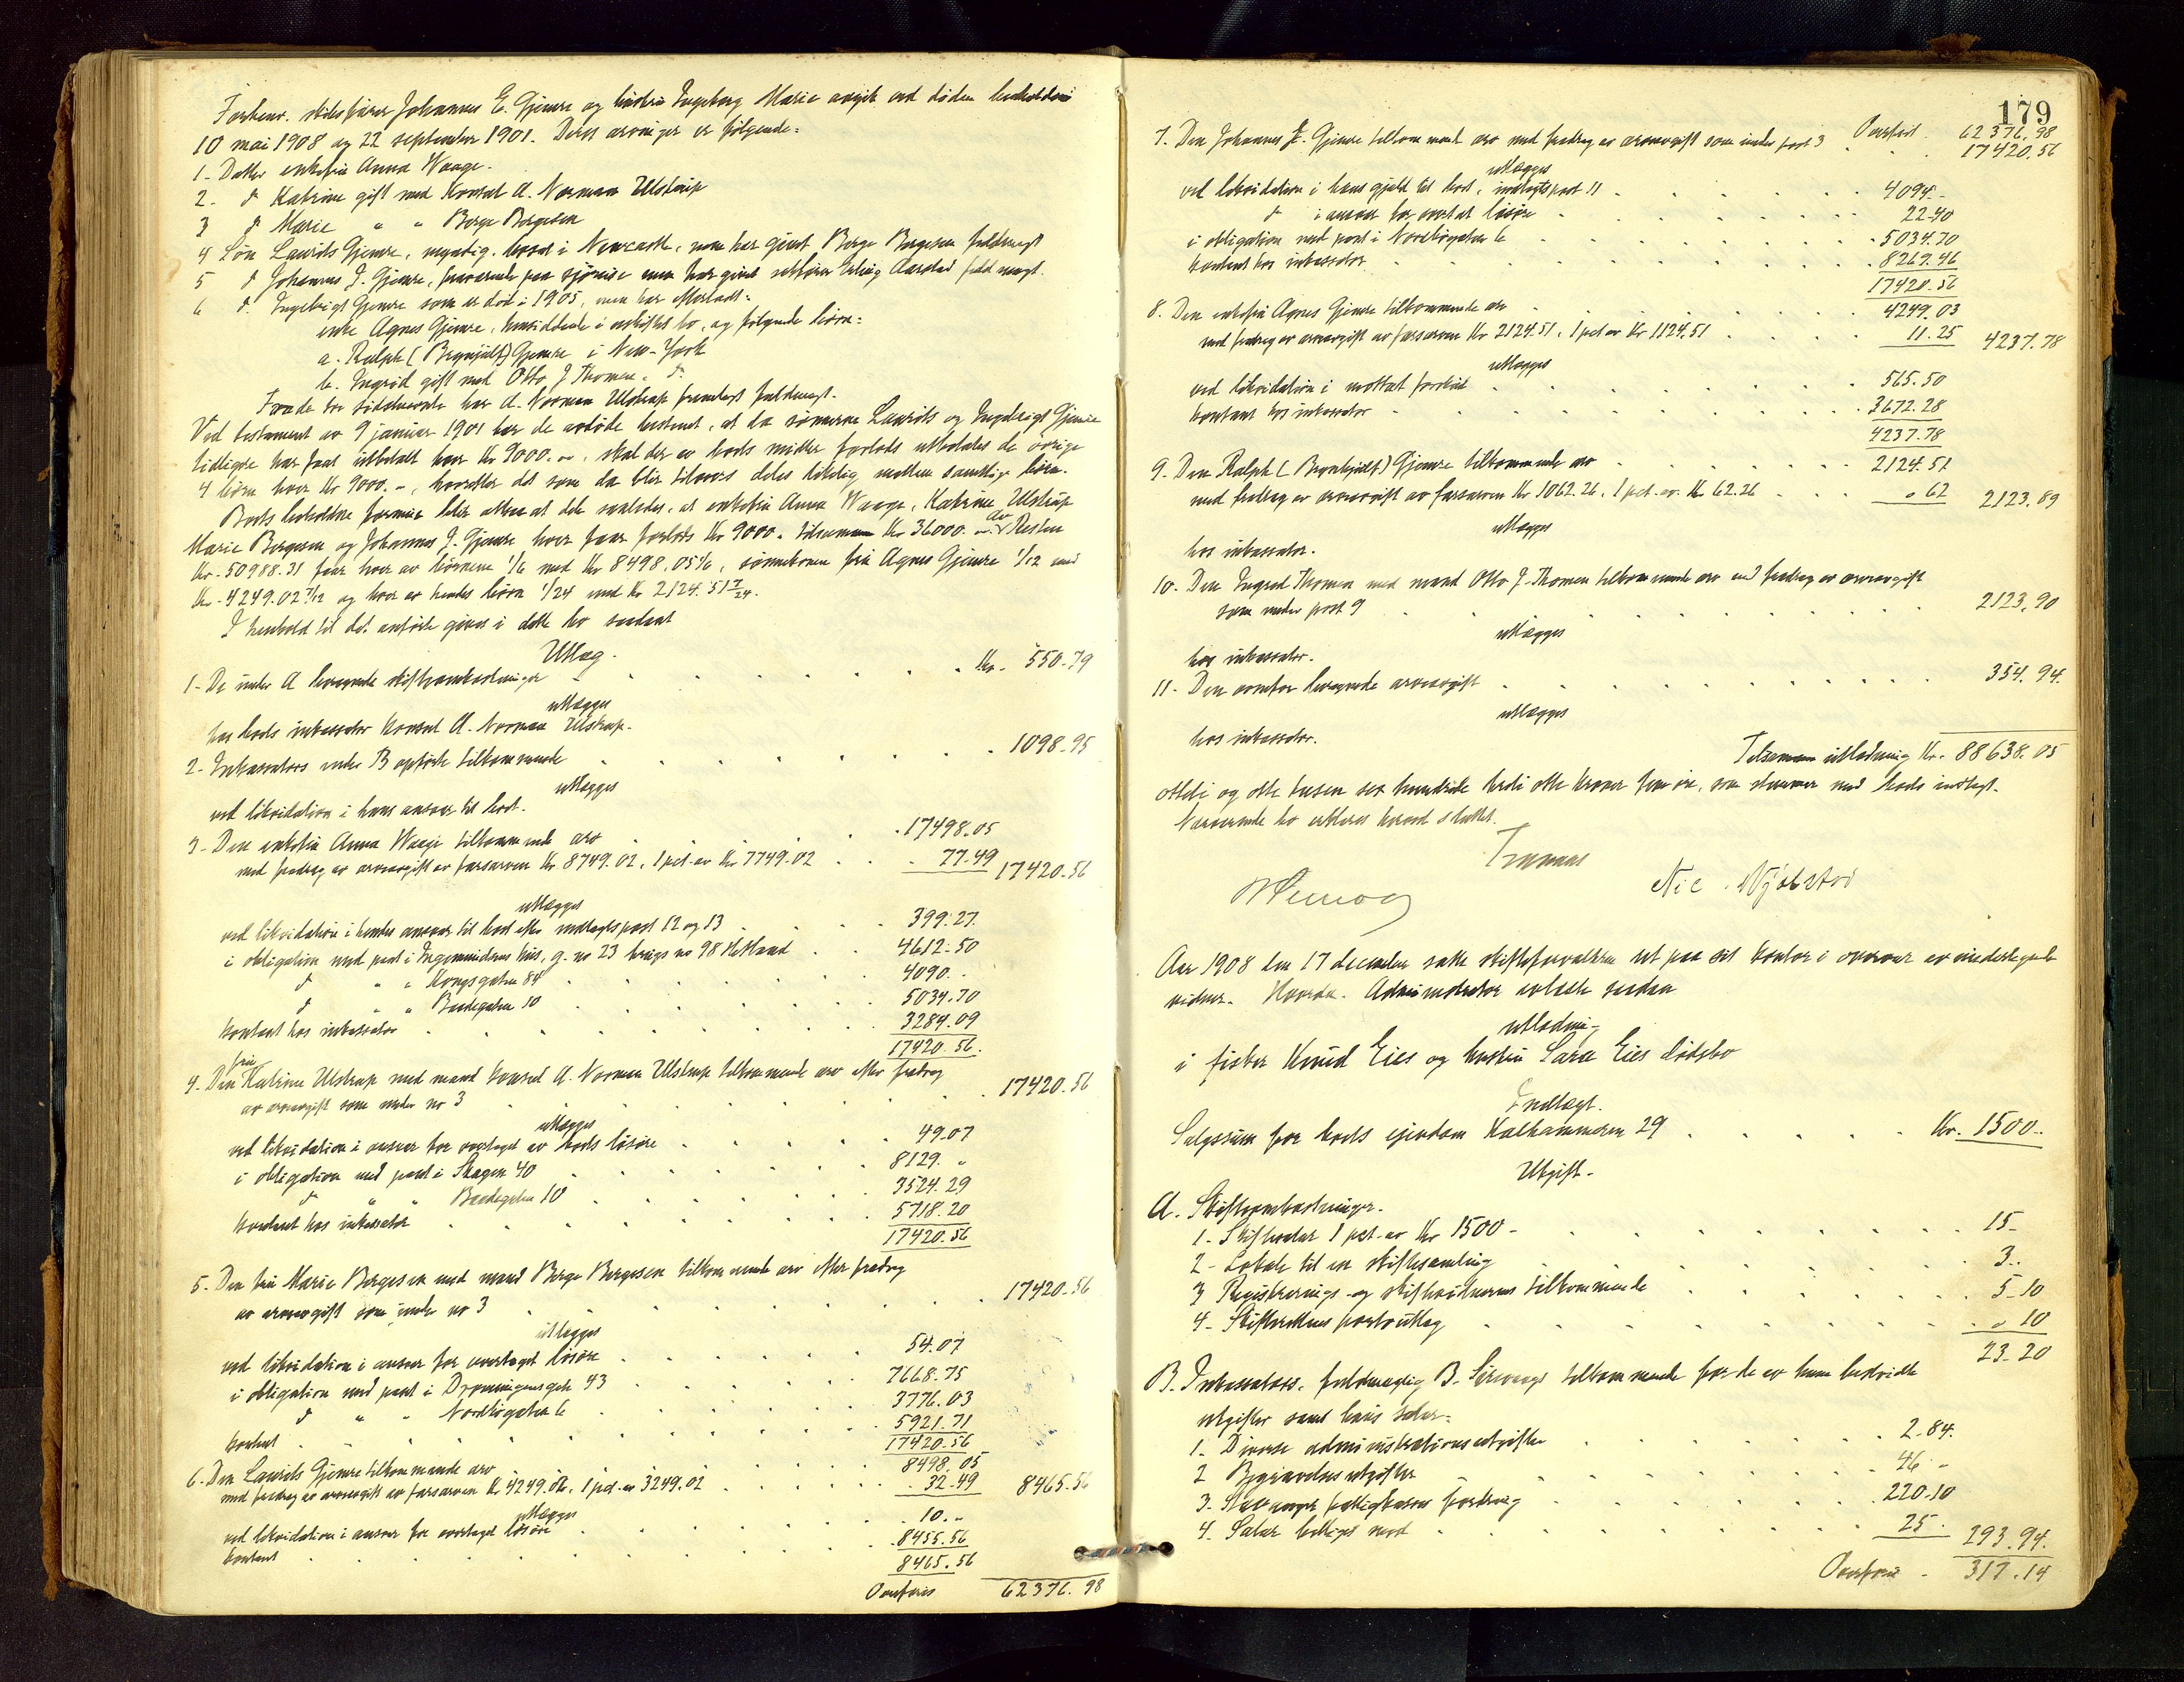 Forhenv. skibsfører Johannes E. Gjemre og hustru Ingeborg Marie avgik ved døden henholdsvis
10 mai 1908 og 22 september 1901. Deres arvinger er følgende:
1- Datter enkefru Anna Waage.
2- d° Katrine gift med Konsul A. Norman Ulstrup
3 d° Marie " " Berge Bergesen
4 Søn Laurits Gjemre, myndig, bosat i Newcastle, som har givet Berge Bergesen fuldmagt
5 d° Johannes J. Gjemre, fraværende paa sjøreise men har givet sakfører Erling Aarstad fuldmagt.
6 d° Ingebrigt Gjemre som er død i 1905, men har efterladt:
enke Agnes Gjemre, hensiddende i uskiftet bo, og følgende børn:
a. Ralph (Brynjulf) Gjemre i New-York
b. Ingrid gift med Otto J Thomen. d°
For de to sidstnævnte har A. Norman Ulstrup fremlagt fuldmagt.
Ved testament av 9 januar 1901 har de avdøde bestemt, at da sønnerne Laurits og Ingebrigt Gjemre
tidligere har faat utbetalt hver Kr 9000.-, skal der av boets midler forlods utbetales de øvrige
4 børn hver Kr 9000.-, hvorefter det som da blir tilovers deles likelig mellem samtlige børn.
Boets beholdne formue blir altsaa at dele saaledes, at enkefru Anna Waage, Katrine Ulstrup
Marie Bergesen og Johannes J. Gjemre hver faar forlods Kr 9000.- tilsammen Kr 36000.-. av Resten
Kr. 50988.31 faar hver av børnene 1/6 med Kr 8498.05 1/6, sønnekonen fru Agnes Gjemre 1/12 med
Kr. 4249.02 7/12 og hver av hendes børn 1/24 med Kr 2124.51 7/24.
I henhold til det anførte gives i dette bo saadant
Utlæg.
1- De under A beregnede skifteomkostninger Kr. 550.79
utlægges
hos boets inkassator Konsul A. Norman Ulstrup.
2- Inkassators under B opførte tilkommende 1098.95
utlægges
ved likvidation i hans ansvar til boet.
3- Den enkefru Anna Waage tilkommende arv 17498.05
med fradrag av arveavgift av farsarven Kr 8749.02, 1 pct. av Kr 7749.02 77.49 17420.56
utlægges
ved likvidation i hendes ansvar til boet efter indtægtspost 12 og 13 399.27
i obligation med pant i Ingermindens hus, g. no 23 brugs no 98 Hetland 4612.50
d° " " Kongsgaten 84 4090.-
d° " " Bredegaten 10 5034.70
kontant hos inkassator 3284.09
17420.56.
4- Den fru Katrine Ulstrup med mand konsul A. Norman Ulstrup tilkommende arv efter fradrag
av arveavgift som under no 3 17420.56
utlægges
ved likvidation i ansvar for overtaget av boets løsøre 49.07
i obligation med pant i Skagen 40 8129. "
d° " " Bredegaten 10 3524.29
kontant hos inkassator 5718.20
17420.56
5. Den fru Marie Bergesen med mand Berge Bergesen tilkommende arv efter fradrag
av arveavgift som under no 3 17420.56
utlægges
ved likvidation i ansvar for overtaget løsøre 54.07
i obligation med pant i Dronningensgate 43 7668.75
d° " " Nordbøgaten 6 3776.03
kontant 5921.71
17420.56
6. Den Laurits Gjemre tilkommende arv 8498.05
med fradrag av arveavgift av farsarven Kr 4249.02, 1 pct. av 3249.02 32.49 8465.56
utlægges
ved likvidation i ansvar for overtaget løsøre 10.-
kontant 8455.56
8465.56
Overføres 62376.98
179
Overført 62376.98
7. Den Johannes J. Gjemre tilkommende arv med fradrag av arveavgift som under post 3 17420.56
utlægges
ved likvidation i hans gjæld til boet, indtægtspost 11 4094.-
d° i ansvar for overtat løsøre 22.40
i obligation med pant i Nordbøgaten 6 5034.70
kontant hos inkassator 8269.46
17420.56
8. Den enkefru Agnes Gjemre tilkommende arv 4249.03
med fradrag av arveavgift av farsarven Kr 2124.51, 1 pct av Kr 1124.51 11.25 4237.78
utlægges
ved likvidation i mottat forskud 565.50
kontant hos inkassator 3672.28
4237.78
9. Den Ralph (Brynhjulf) Gjemre tilkommende arv 2124.51
med fradrag av arveavgift av farsarven Kr 1062.26, 1 pct. av Kr 62.26 " 62 2123.89
utlægges
hos inkassator.
10. Den Ingrid Thomen med mand Otto J. Thomen tilkommende arv med fradrag av arveavgift
som under post 9 2123.90
utlægges
hos inkassator.
11- Den ovenfor beregnede arveavgift 354.94.
utlægges
hos inkassator.
Tilsammen utlodning Kr. 88638.05
otteti og otte tusen sex hundrede tredive otte kroner fem øre, som stemmer med boets indtægt.
Nærværende bo erklæres herved sluttet.
Aar 1908 den 17 december satte skifteforvalteren ret paa sit kontor i overvær av undertegnede
vidner. Hvorda. Administrator avlæste saadan
utlodning
i fisker Knud Eies og hustru Sara Eies dødsbo
Indtægt.
Salgssum for boets eiendom Kalhammeren 29 Kr. 1500.-
Utgift.
A. Skifteomkostninger.
1- Skiftesalær 1 pct. av Kr 1500- 15-
2- Lokale til en skiftesamling 3..
3 Registrerings- og skiftevidnernes tilkommende 5.10
4- Skifterettens portoutlæg " 10
23.20
B. Inkassators, fuldmægtig B. tilkommende for de av ham bestridte
utgifter samt hans salær:
1- Diverse administrationsutgifter 2.84.
2 Begravelsesutgifter 46 "
3- Stavanger fattigkasses fordring 220.10
4. Salær billiget med 25. 293.94.
Overføres 317.14